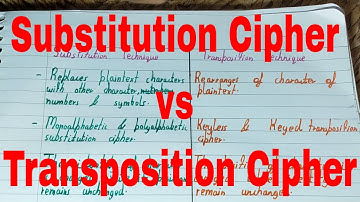 Substitution Cipher
Substitution Technique
Transposition Technique
- Replaces plaintext characters
with other character,
numbers & symbols.
Rearranges of character of
plaintext.
vs
- Monoalphabetic & polyalphabetic
substitution cipher.
Keyless & Keyed transposition
cipher.
Transposition Cipher
remain unchanged.